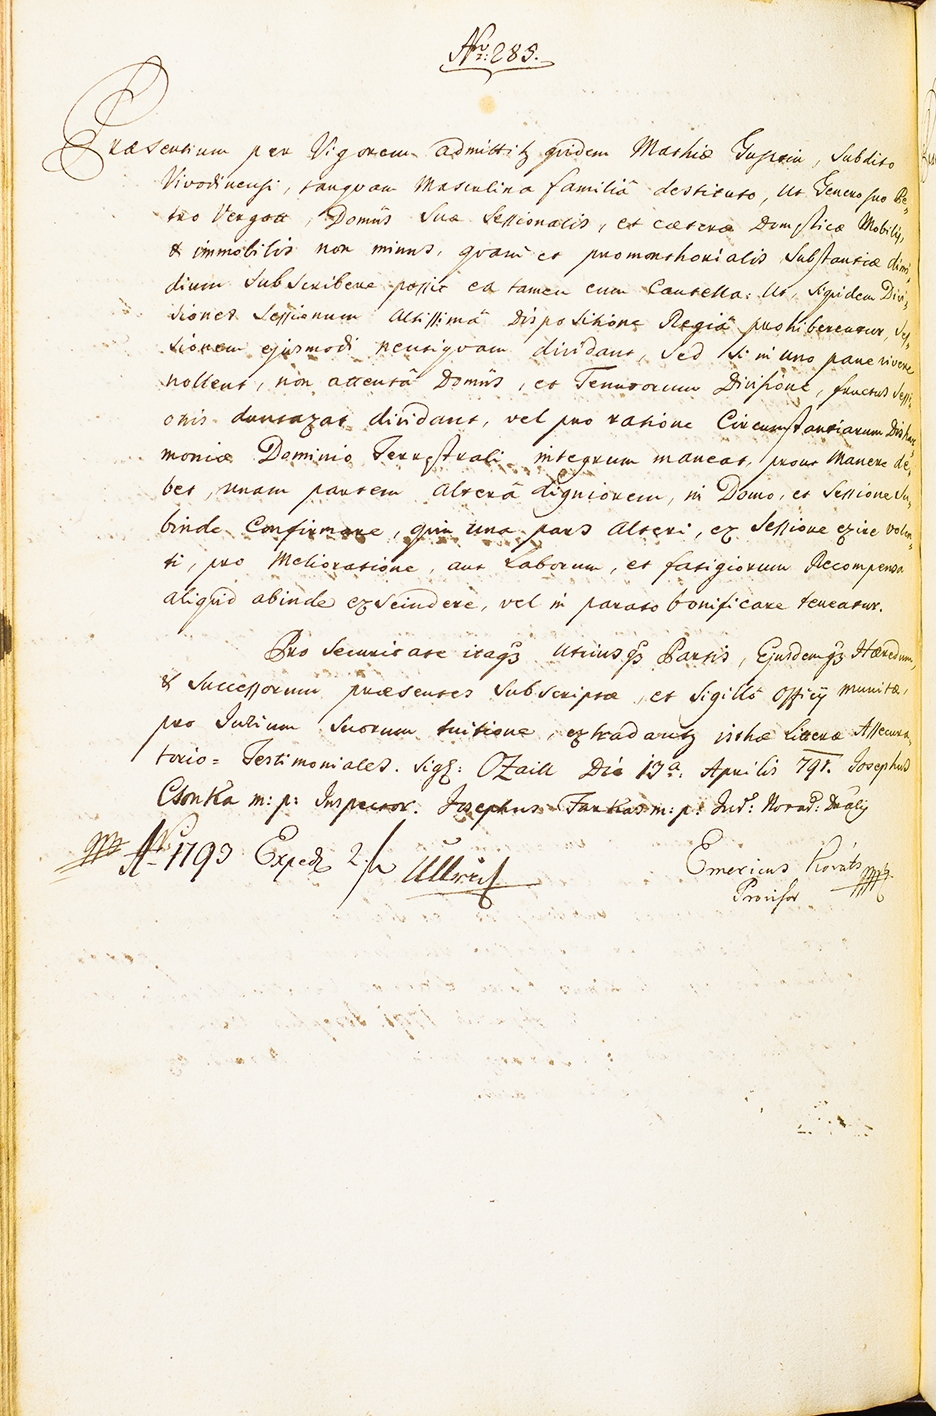 Nro: 285.
Præsentium per Vigorem admittitʒ quidem Mathiæ Guszin, Subdito
Vivodinensi, tanquam Masculina familiâ destituto, Ut Genero suo Pe-
tro Vergott, Domûs Suæ Sessionalis, et cæteræ Domesticæ Mobilis,
& immobilis non minus, quam et promonthorialis Substantiæ dimi-
dium Subscribere possit ea tamen cum Cautella: Ut, Siquidem Divi-
siones Sessionum Altissimâ Dispositione Regiâ prohiberentur, Ses-
sionem ejusmodi neutiquam dividant, Sed Si in uno pane vivere
nollent, non attentâ Domûs, et Tenutorum Divisione, fructus Sessi-
onis duntaxat dividant, vel pro ratione Circumstantiarum Dishar-
moniæ Dominio Terrestrali integrum maneat, prout Manere de-
bet, unam partem alterâ digniorem, in Domo, et Sessione Su-
binde Confirmare, quin una pars alteri, ex Sessione exire volen-
ti, pro Melioratione, aut Laborum, et fatigiorum Recompensa
aliquid abinde exscindere, vel in parato bonificare teneatur.
Pro Securitate itaqʒ Utriusqʒ Partis, Ejusdemqʒ Hæredum,
& Successorum præsentes Subscriptæ, et Sigillô Officij munitæ,
pro Jurium Suorum tuitione, extradantʒ isthæ Litteræ Assecura-
torio = Testimoniales. Sigʒ: Ozaill Die 13a: Aprilis 791. Josephus
Csonka m: p: Inspector. Josephus Farkas m: p: Jud: Norad: Dnalis
No 1793 Exped 2/ Ullrich
Emericus Kováts
Provisor